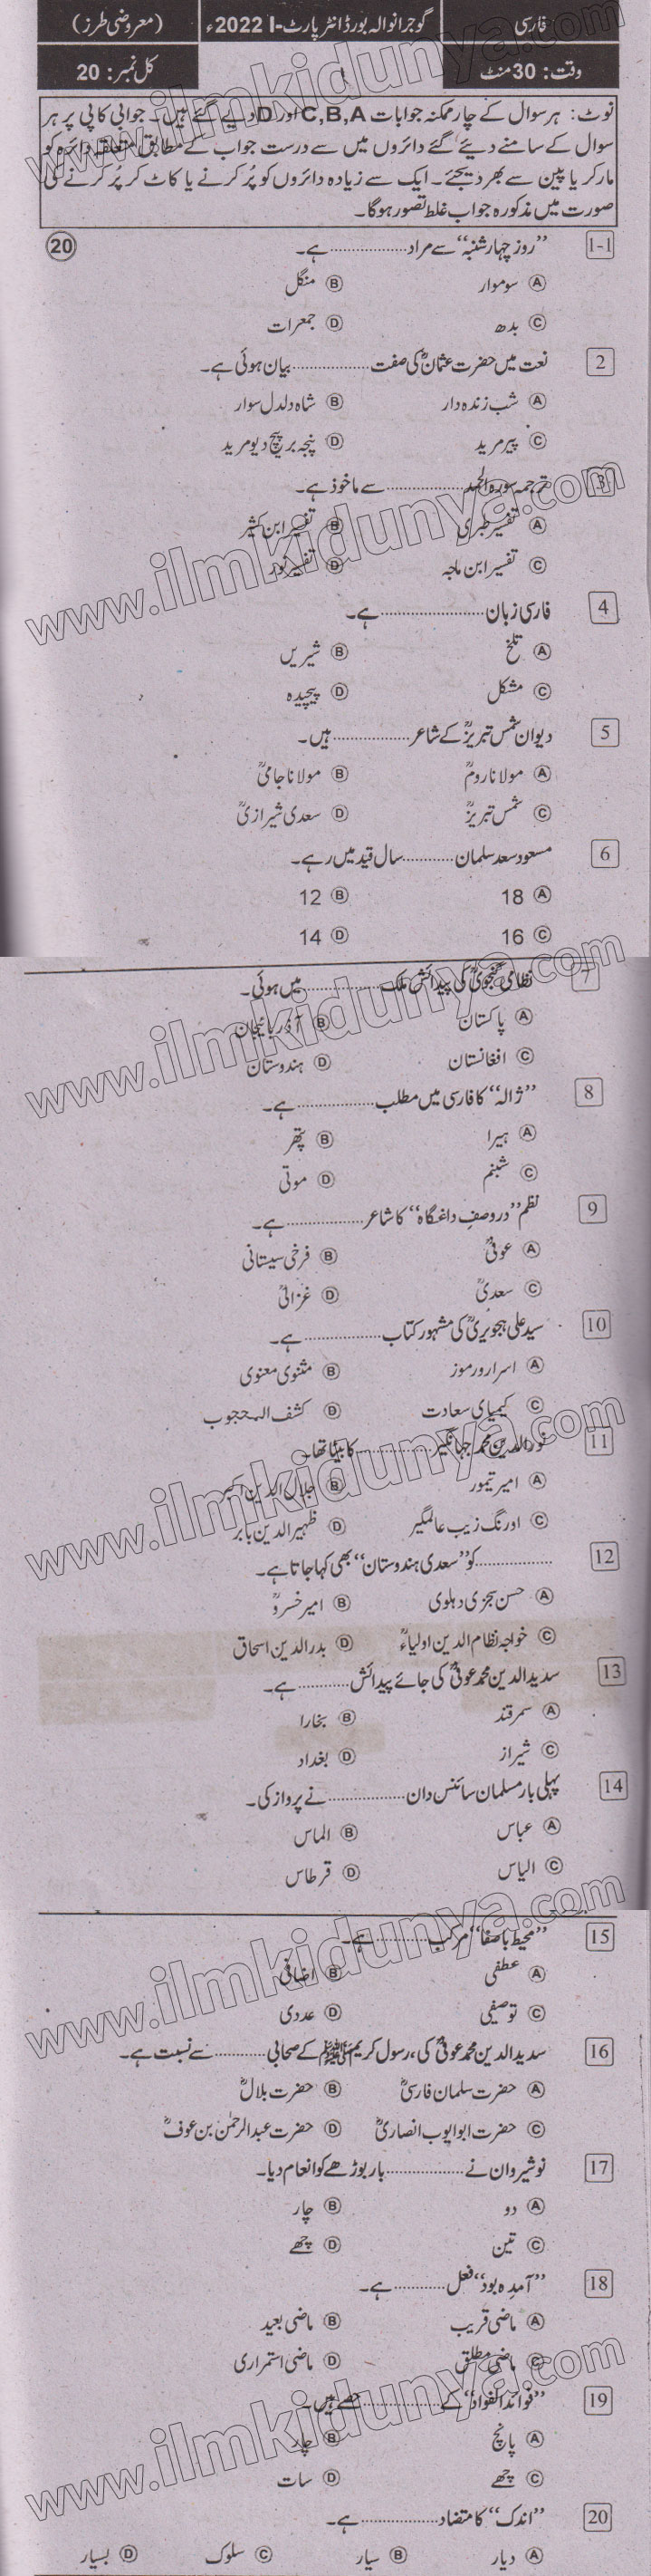 فارسی
گوجرانوالہ بورڈ انٹر پارٹ-I 2022ء
(معروضی طرز)
وقت: 30 منٹ
کل نمبر: 20
نوٹ: ہر سوال کے چار ممکنہ جوابات C,B,A اور D دیے گئے ہیں۔ جوابی کاپی پر ہر
سوال کے سامنے دیئے گئے دائروں میں سے درست جواب کے مطابق متعلقہ دائرہ کو
مارکر یا پین سے بھر دیجئے۔ ایک سے زیادہ دائروں کو پُر کرنے یا کاٹ کر پُر کرنے کی
صورت میں مذکورہ جواب غلط تصور ہوگا۔
1-1 ’’روز چہار شنبہ‘‘ سے مراد ................ ہے۔ 20
A سوموار B منگل
C بدھ D جمعرات
2 نعت میں حضرت عثمانؓ کی صفت ................ بیان ہوئی ہے۔
A شب زندہ دار B شاہ دلدل سوار
C پیر مرید D پنجہ بر پیچ دیو مرید
3 ترجمہ سورہ الحمد ................ سے ماخوذ ہے۔
A تفسیر طبری B تفسیر ابن کثیر
C تفسیر ابن ماجہ D تفسیر نور
4 فارسی زبان ................ ہے۔
A تلخ B شیریں
C مشکل D پیچیدہ
5 دیوان شمس تبریزؒ کے شاعر ................ ہیں۔
A مولانا رومؒ B مولانا جامیؒ
C شمس تبریزؒ D سعدی شیرازیؒ
6 مسعود سعد سلمان ............ سال قید میں رہے۔
A 18 B 12
C 16 D 14
7 نظامی گنجویؒ کی پیدائش ملک ................ میں ہوئی۔
A پاکستان B آذربائیجان
C افغانستان D ہندوستان
8 ’’ژالہ‘‘ کا فارسی میں مطلب ................ ہے۔
A ہیرا B پتھر
C شبنم D موتی
9 نظم ’’در وصفِ داغگاہ‘‘ کا شاعر ................ ہے۔
A عوفیؒ B فرخی سیستانی
C سعدیؒ D غزالیؒ
10 سید علی ہجویریؒ کی مشہور کتاب ................ ہے۔
A اسرار و رموز B مثنوی معنوی
C کیمیای سعادت D کشف المحجوب
11 نورالدین محمد جہانگیر ................ کا بیٹا تھا۔
A امیر تیمور B جلال الدین اکبر
C اورنگ زیب عالمگیر D ظہیر الدین بابر
12 ................ کو ’’سعدی ہندوستان‘‘ بھی کہا جاتا ہے۔
A حسن سجزی دہلوی B امیر خسروؒ
C خواجہ نظام الدین اولیاءؒ D بدر الدین اسحاق
13 سدید الدین محمد عوفیؒ کی جائے پیدائش ............ ہے۔
A سمرقند B بخارا
C شیراز D بغداد
14 پہلی بار مسلمان سائنس دان ................ نے پرواز کی۔
A عباس B الماس
C الیاس D قرطاس
15 ’’محیط باصفا‘‘ مرکب ............ ہے۔
A عطفی B اضافی
C توصیفی D عددی
16 سدید الدین محمد عوفیؒ کی، رسول کریم ﷺ کے صحابی ............ سے نسبت ہے۔
A حضرت سلمان فارسیؓ B حضرت بلالؓ
C حضرت ابو ایوب انصاریؓ D حضرت عبدالرحمٰن بن عوفؓ
17 نوشیروان نے ................ بار بوڑھے کو انعام دیا۔
A دو B چار
C تین D چھے
18 ’’آمدہ بود‘‘ فعل ............ ہے۔
A ماضی قریب B ماضی بعید
C ماضی مطلق D ماضی استمراری
19 ’’فوائد الفواد‘‘ کے ................ حصے ہیں۔
A پانچ B چار
C چھے D سات
20 ’’اندک‘‘ کا متضاد ................ ہے۔
A دیار B سیار C سلوک D بسیار
www.ilmkidunya.com
www.ilmkidunya.com
www.ilmkidunya.com
www.ilmkidunya.com
www.ilmkidunya.com
www.ilmkidunya.com